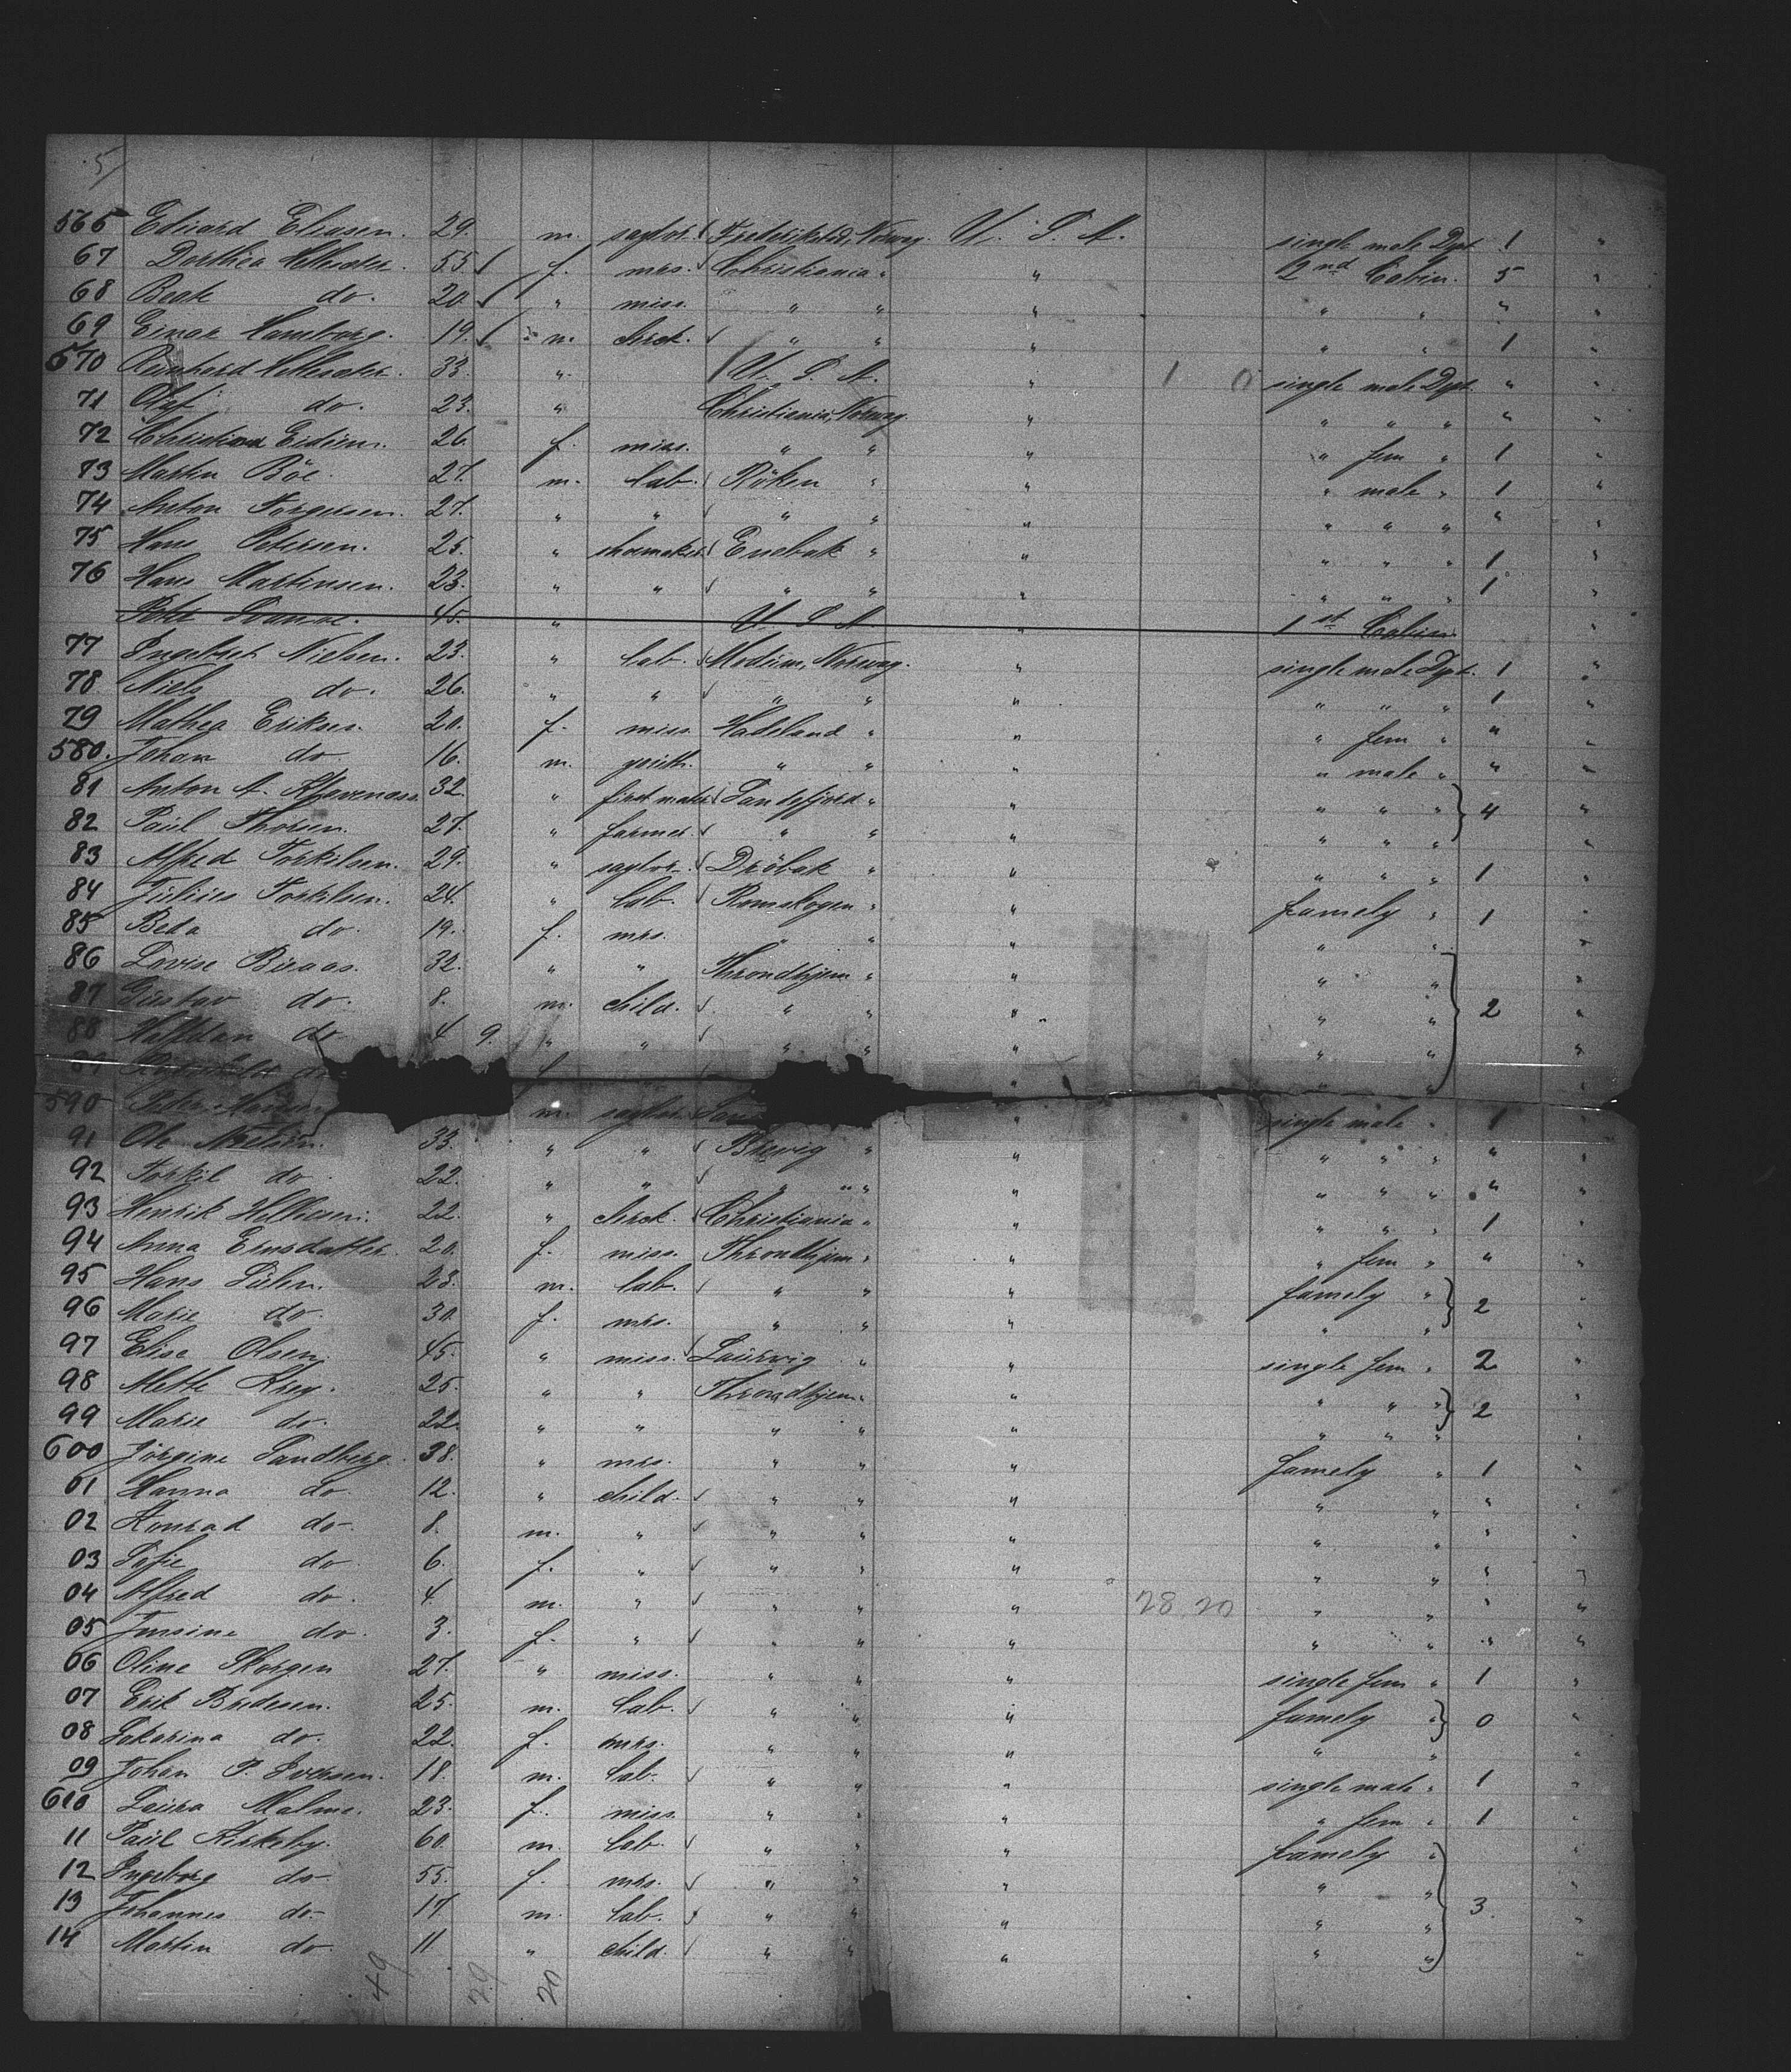 5/
565 Eduard Eliasen. 29. m. saylor. Frederikstad, Norway. U. S. A. single male Dpt. 1 "
67 Dorthea 55. f. mrs. Christiania " " 2nd Cabin. 5 "
68 Beate do. 20. " miss. " " " " " " "
69 Einar Hamborg. 19. m. clerck. " " " " " 1 "
570 Reinhard 33. " U. S. A. " 1 0 single male Dpt. " "
71 Olaf do. 23. " Christiania, Norway. " " " " " "
72 Christine Eidiem. 26. f. miss. " " " " fem " 1 "
73 Martin Böe. 27. m. lab. Röken " " " male " 1 "
74 Anton Torgersen. 27. " " " " " " " " " "
75 Hans Petersen. 25. " shoemaker Enebak " " " " " 1 "
76 Hans Martinsen. 23. " " " " " " " " 1 "
Peter 45. " U S A " 1st Cabin. "
77 Ingebret Nielsen. 23. " lab. Modum, Norway. " single male Dpt. 1 "
78 Niels do. 26. " " " " " " " " 1 "
79 Mathea Eriksen. 20. f. miss. Hadeland " " " fem " " "
580. Johan do. 16. m. youth. " " " " male " " "
81 Anton A. 32. " first mate Sandefjord " " " " " 4 "
82 Paul Thorsen. 27. " farmer " " " " " " "
83 Alfred Torkilsen. 29. " saylor. Dröbak " " " " " 1 "
84 Julius Torkilsen. 24. " lab. Romskogen " " famely " 1 "
85 Beda do. 19. f. mrs. " " " " " "
86 Lovise Buaas. 32. " " Throndhjem " " " " "
87 Gustav do. 8. m. child. " " " " " 2 "
88 Halfdan do. 4 9. " " " " " " " "
89 do f " " " "
590 Peter m. saylor. " single male " 1 "
91 Ole Nielsen. 33. " " Brevig " " " " " " "
92 Torkil do. 22. " " " " " " " " " "
93 Henrik 22. " clerck. Christiania " " " " " 1 "
94 Anna 20. f. miss. Throndhjem " " " fem " " "
95 Hans 23. m. lab. " " " famely " 2 "
96 Marie do. 30. f. mrs. " " " " "
97 Elise Olsen. 45. " miss. Laurvig " " single fem " 2 "
98 Mette Krey. 25. " " Throndhjem " " " " " 2
99 Marie do. 22. " " " " " " " " "
600 Jörgine Sandberg. 38. " mrs. " " " famely " 1 "
01 Hanna do. 12. " child. " " " " " "
02 Konrad do. 8. m. " " " " " " " "
03 Sofie do. 6. f. " " " " " " " "
04 Alfred do. 4. m. " " " " 28 20 " " " "
05 do. 3. f. " " " " " " " "
06 Oline Skorgen 27. " miss. " " " single fem " 1 "
07 Erik 25. m. lab. " " " famely " 0 "
08 do. 22. f. mrs. " " " " " "
09 Johan P. Iversen. 18. m. lab. " " " single male " 1 "
610 Laura Malme. 23. f. miss. " " " " fem " 1 "
11 Paul Kirkeby. 60. m. lab. " " " famely " "
12 Ingeborg do. 55. f. mrs. " " " " " "
13 Johannes do. 17. m. lab. " " " " " 3. "
14 Martin do. 11 " child. " " " " " "
49 29 20